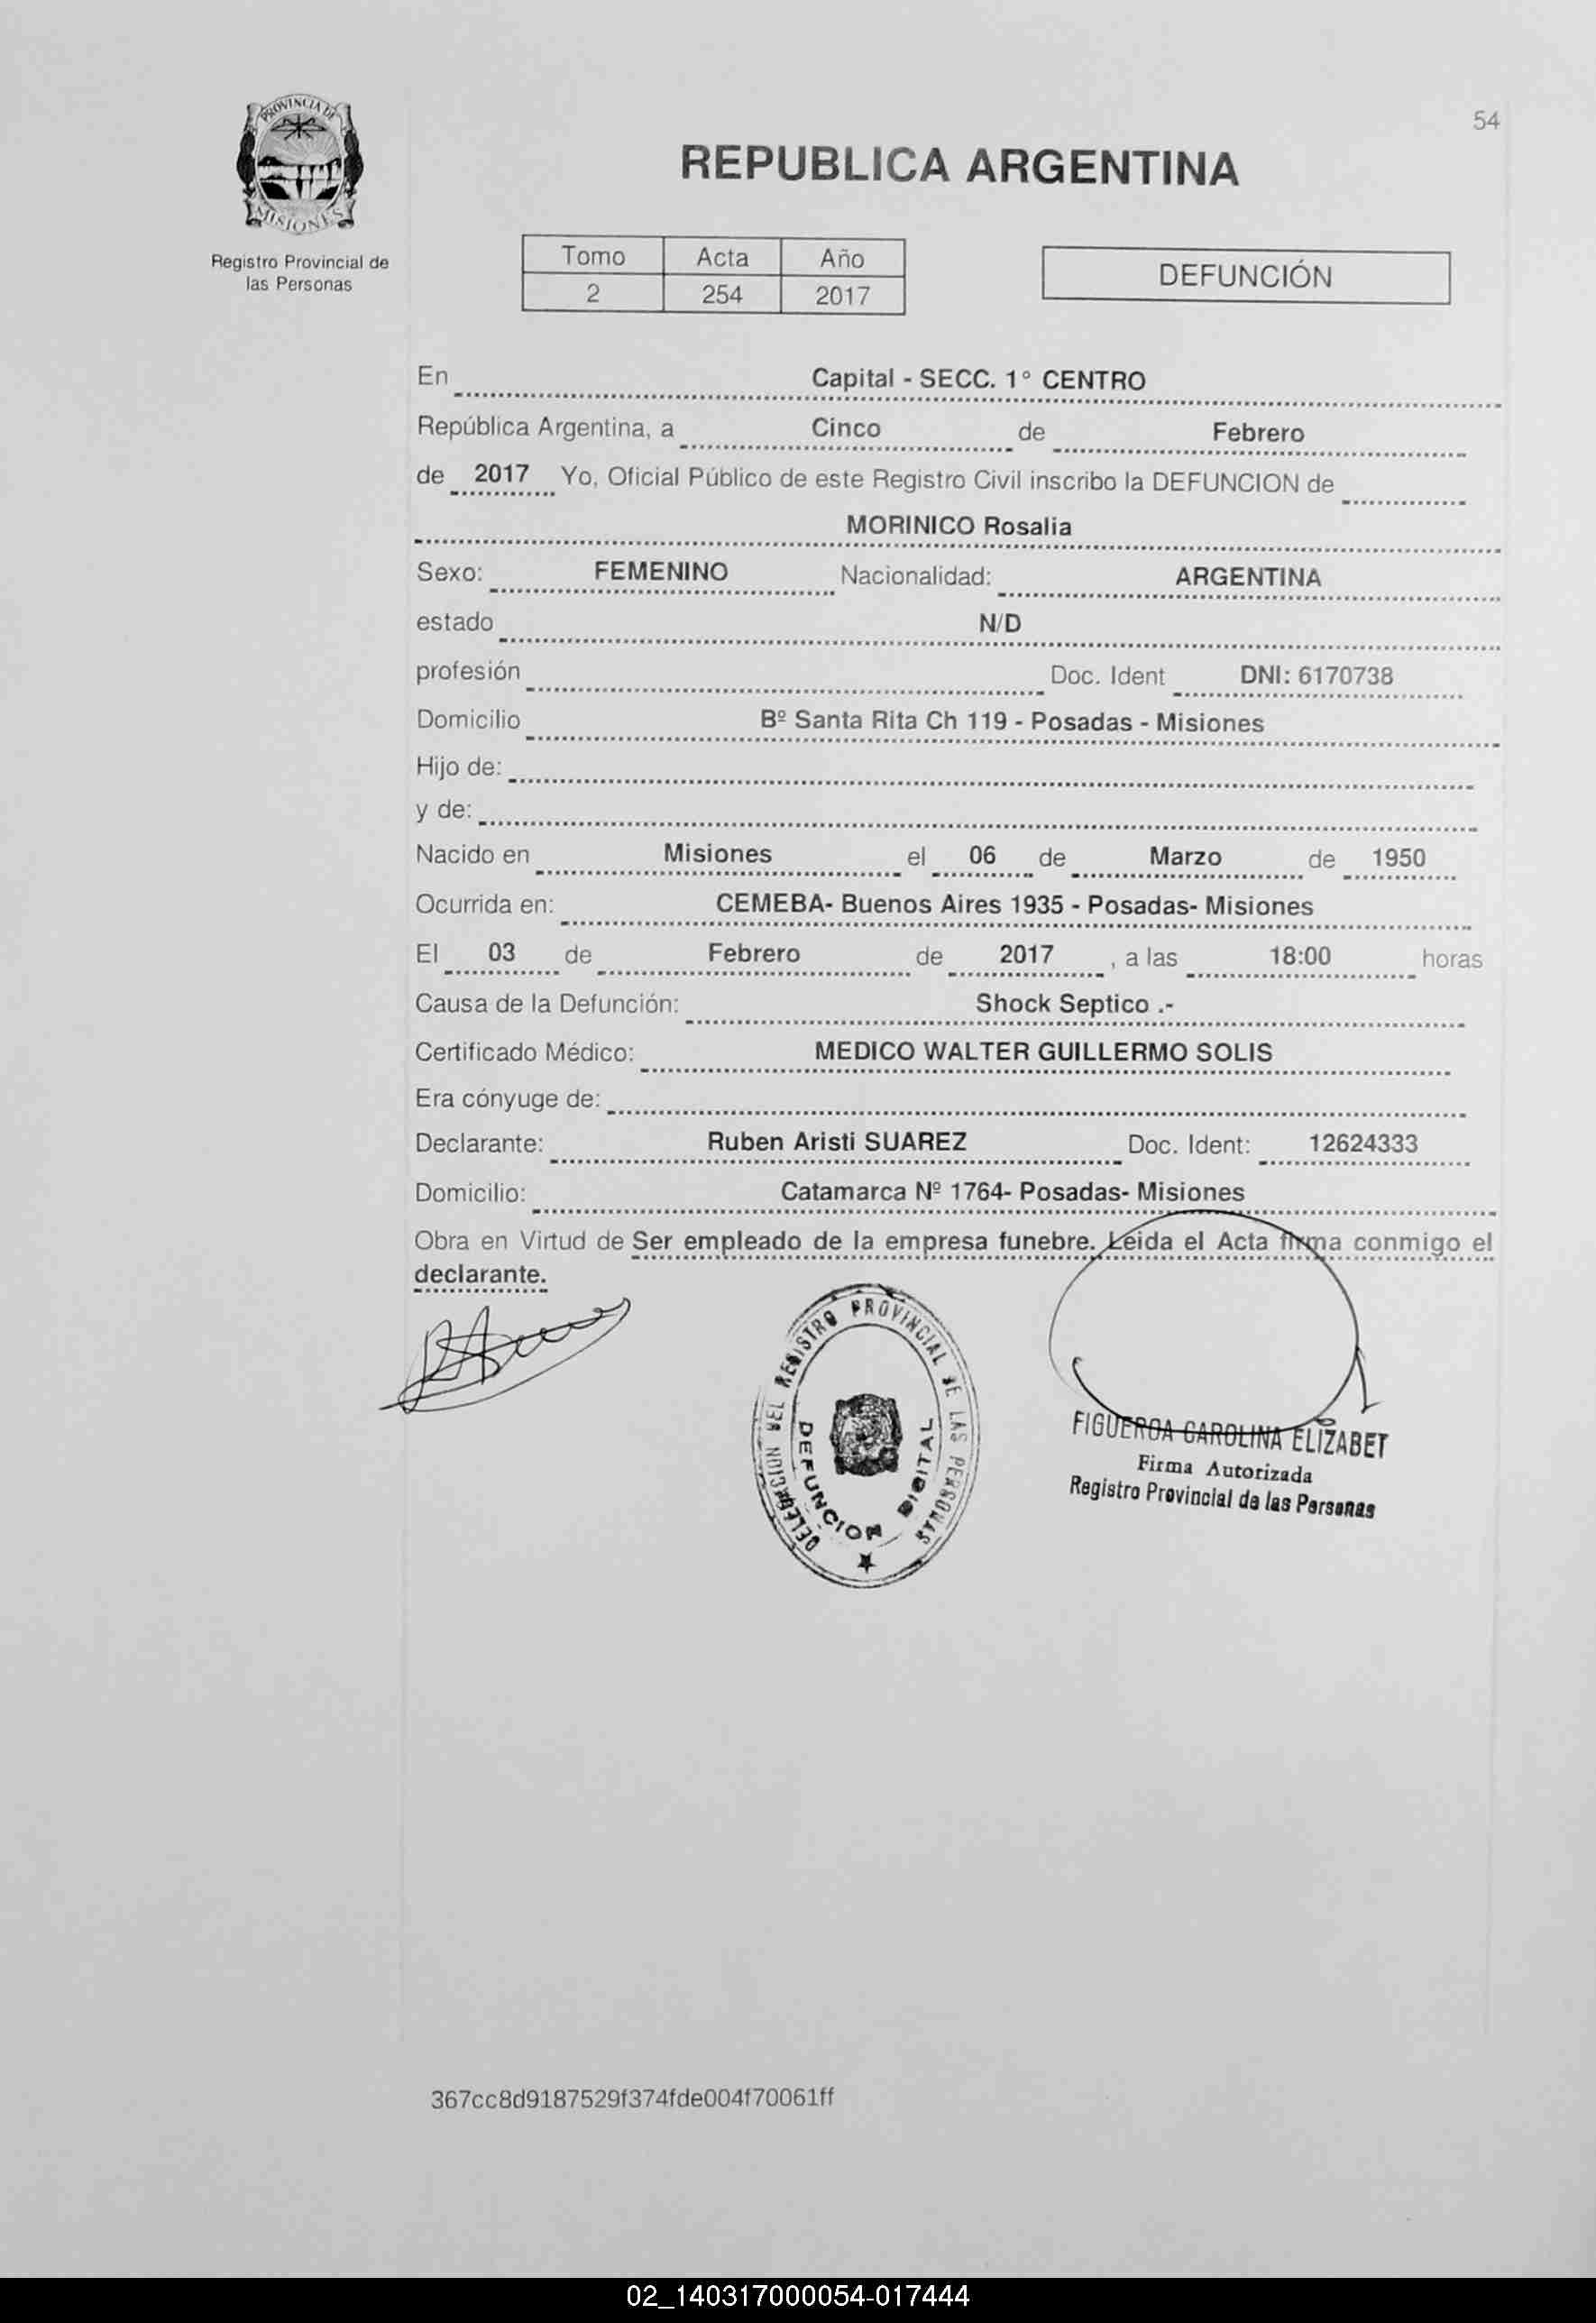 54
PROVINCIA DE
MISIONES
Registro Provincial de
las Personas
REPUBLICA ARGENTINA
Tomo Acta Año
2 254 2017
DEFUNCIÓN
En Capital - SECC. 1° CENTRO
República Argentina, a Cinco de Febrero
de 2017 Yo, Oficial Público de este Registro Civil inscribo la DEFUNCION de
MORINICO Rosalia
Sexo: FEMENINO Nacionalidad: ARGENTINA
estado N/D
profesión Doc. Ident DNI: 6170738
Domicilio Bº Santa Rita Ch 119 - Posadas - Misiones
Hijo de:
y de:
Nacido en Misiones el 06 de Marzo de 1950
Ocurrida en: CEMEBA- Buenos Aires 1935 - Posadas- Misiones
El 03 de Febrero de 2017 , a las 18:00 horas
Causa de la Defunción: Shock Septico .-
Certificado Médico: MEDICO WALTER GUILLERMO SOLIS
Era cónyuge de:
Declarante: Ruben Aristi SUAREZ Doc. Ident: 12624333
Domicilio: Catamarca Nº 1764- Posadas- Misiones
Obra en Virtud de Ser empleado de la empresa funebre. Leida el Acta firma conmigo el
declarante.
DELEGACION DEL REGISTRO PROVINCIAL DE LAS PERSONAS
DEFUNCION DIGITAL
FIGUEROA CAROLINA ELIZABET
Firma Autorizada
Registro Provincial de las Personas
367cc8d9187529f374fde004f70061ff
02_140317000054-017444